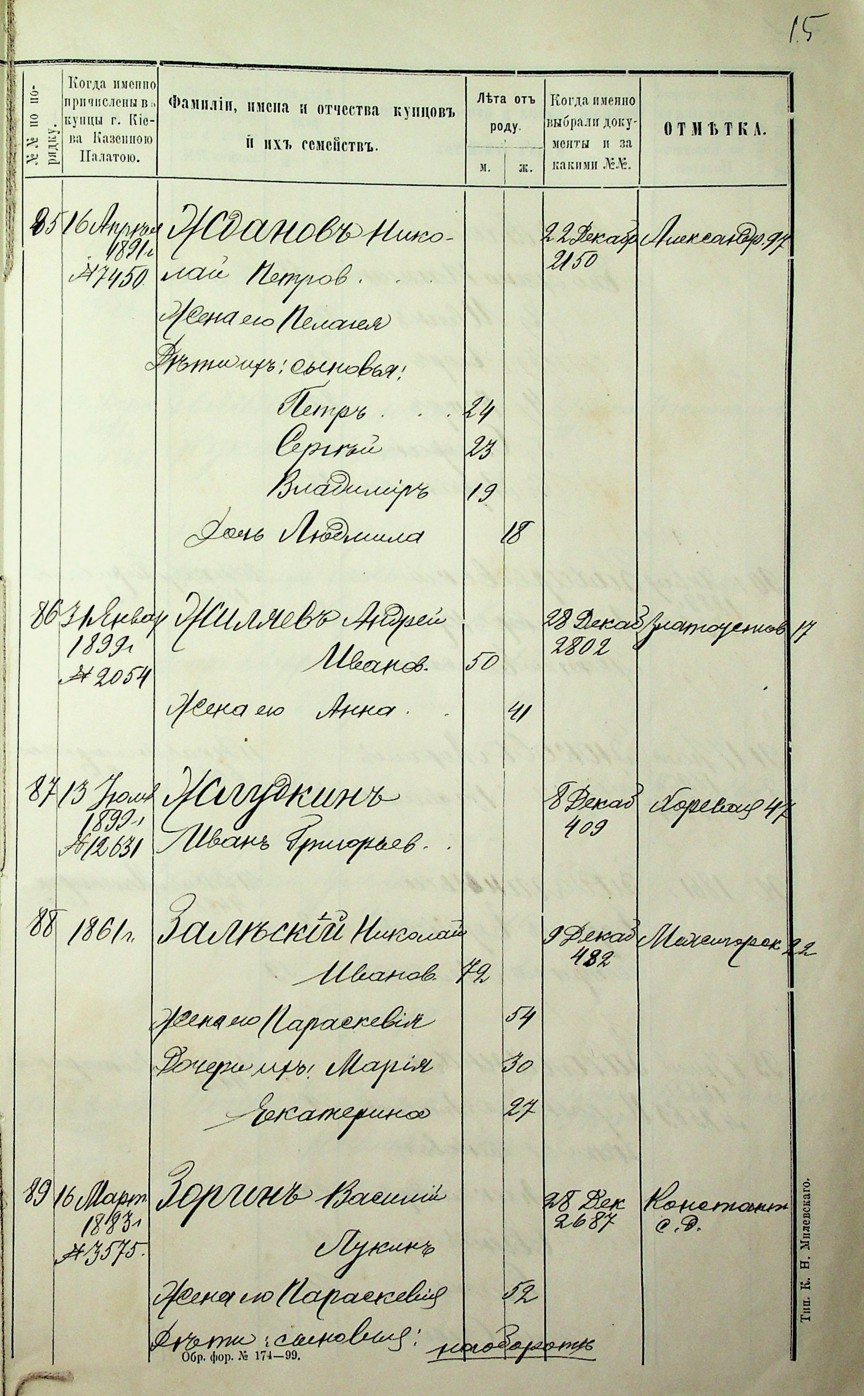 15
№№ по по-
рядку.
Когда именно
причислены въ
купцы г. Кіе-
ва Казенною
Палатою.
Фамиліи, имена и отчества купцовъ
и ихъ семействъ.
Лѣта отъ
роду.
м. ж.
Когда именно
выбрали доку-
менты и за
какими №№.
ОТМѢТКА.
85 16 Апрѣля Ждановъ Нико- 22 Декабр Александр. 97
1891г. 2150
№7450 лай Петров.
Жена его Пелагея
Дѣти ихъ: сыновья:
Петръ 24
Сергѣй 23
Владиміръ 19
Дочь Людмила 18
86 31 Январ Жиляевъ Андрей 28 Декаб Златоустов 17
1899г. 2802
№ 2054 Иванов. 50
Жена его Анна 41
87 13 Іюля Жмудкинъ 8 Декаб Хоревая 47
1899г. 409
№12631 Иванъ Григорьев.
88 1861г. Залѣскій Николай 9 Декаб Межигорск 22
432
Иванов. 72
Жена его Параскевія 54
Дочери ихъ: Марія 30
Екатерина 27
89 16 Март Зоринъ Василій 28 Дек Константин
1883г. 2687 с. д.
№3575. Лукинъ
Жена его Параскевія 52
Дѣти: сыновья: наоборотъ
Обр. фор. № 174—99.
Тип. К. Н. Милевскаго.